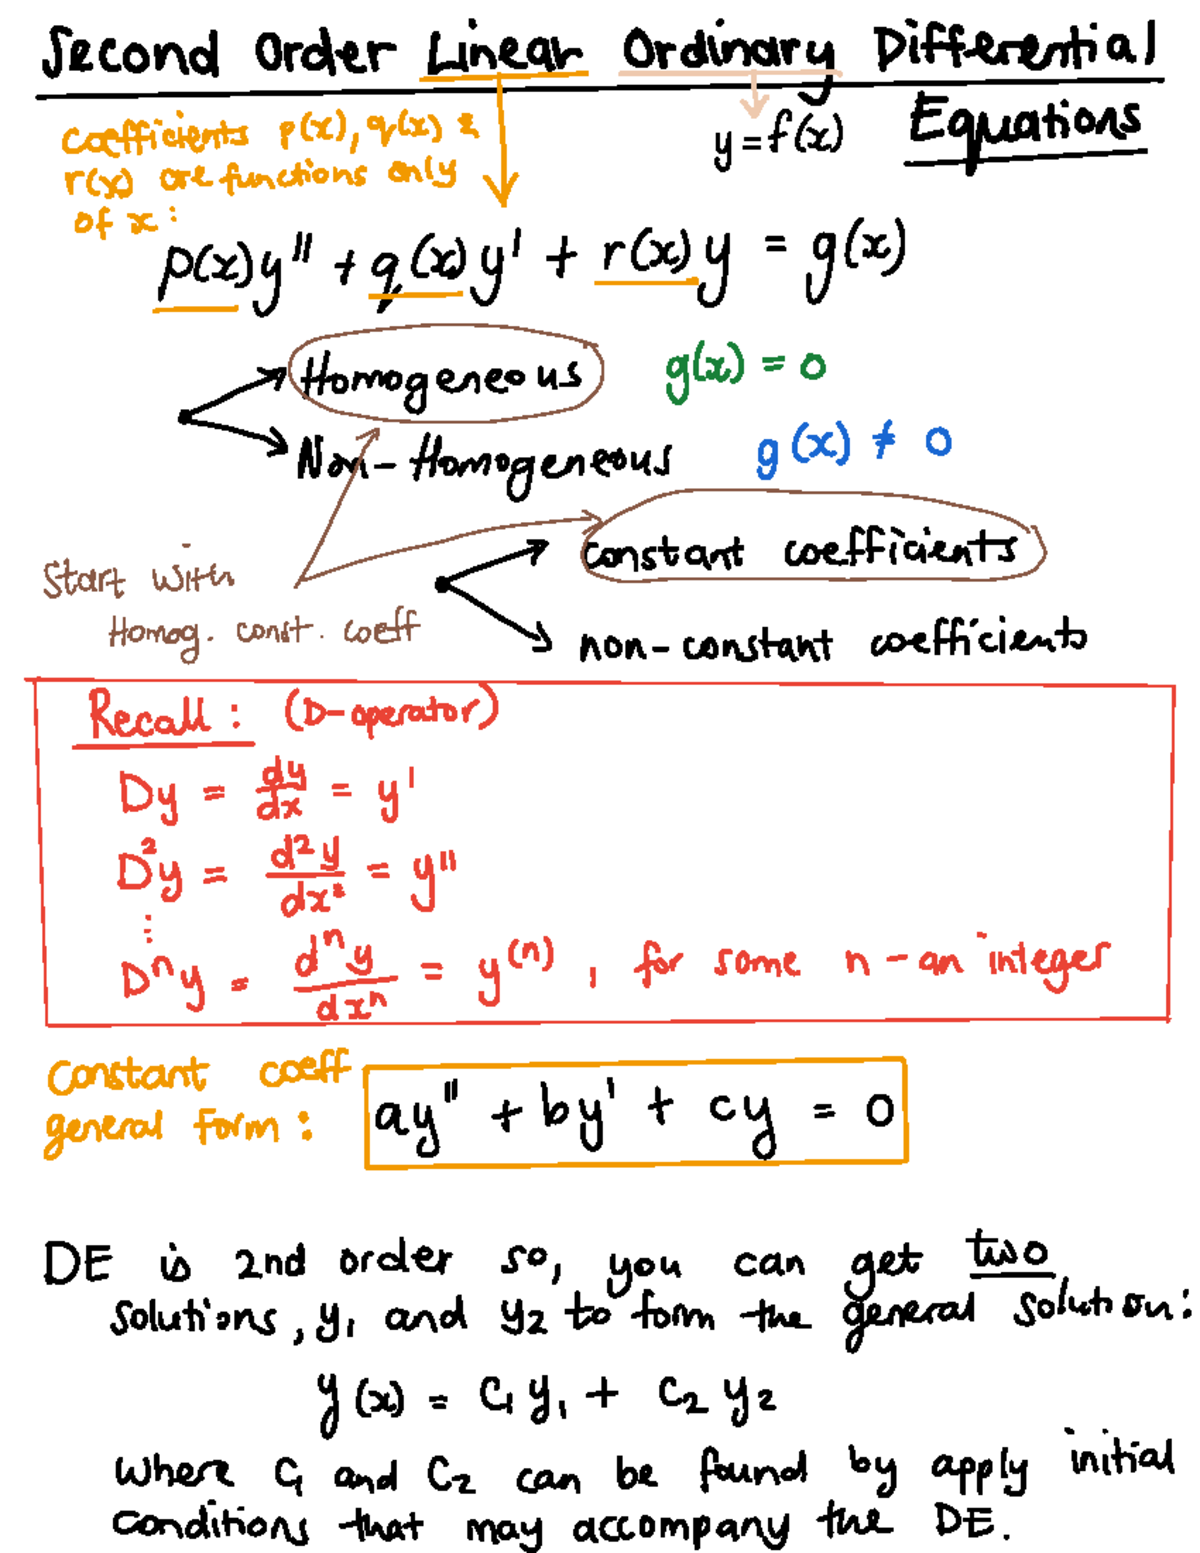 Second Order Linear Ordinary Differential
Equations
coefficients p(x), q(x) &
r(x) are functions only
of x:
y = f(x)
p(x)y'' + q(x)y' + r(x)y = g(x)
Homogeneous g(x) = 0
Non-Homogeneous g(x) ≠ 0
constant coefficients
Start with
Homog. const. coeff
non-constant coefficients
Recall: (D-operator)
Dy = dy/dx = y'
D²y = d²y/dx² = y''
⋮
Dⁿy = dⁿy/dxⁿ = y⁽ⁿ⁾, for some n - an integer
Constant coeff
general form:
ay'' + by' + cy = 0
DE is 2nd order so, you can get two
solutions, y₁ and y₂ to form the general solution:
y(x) = C₁y₁ + C₂y₂
where C₁ and C₂ can be found by apply initial
conditions that may accompany the DE.